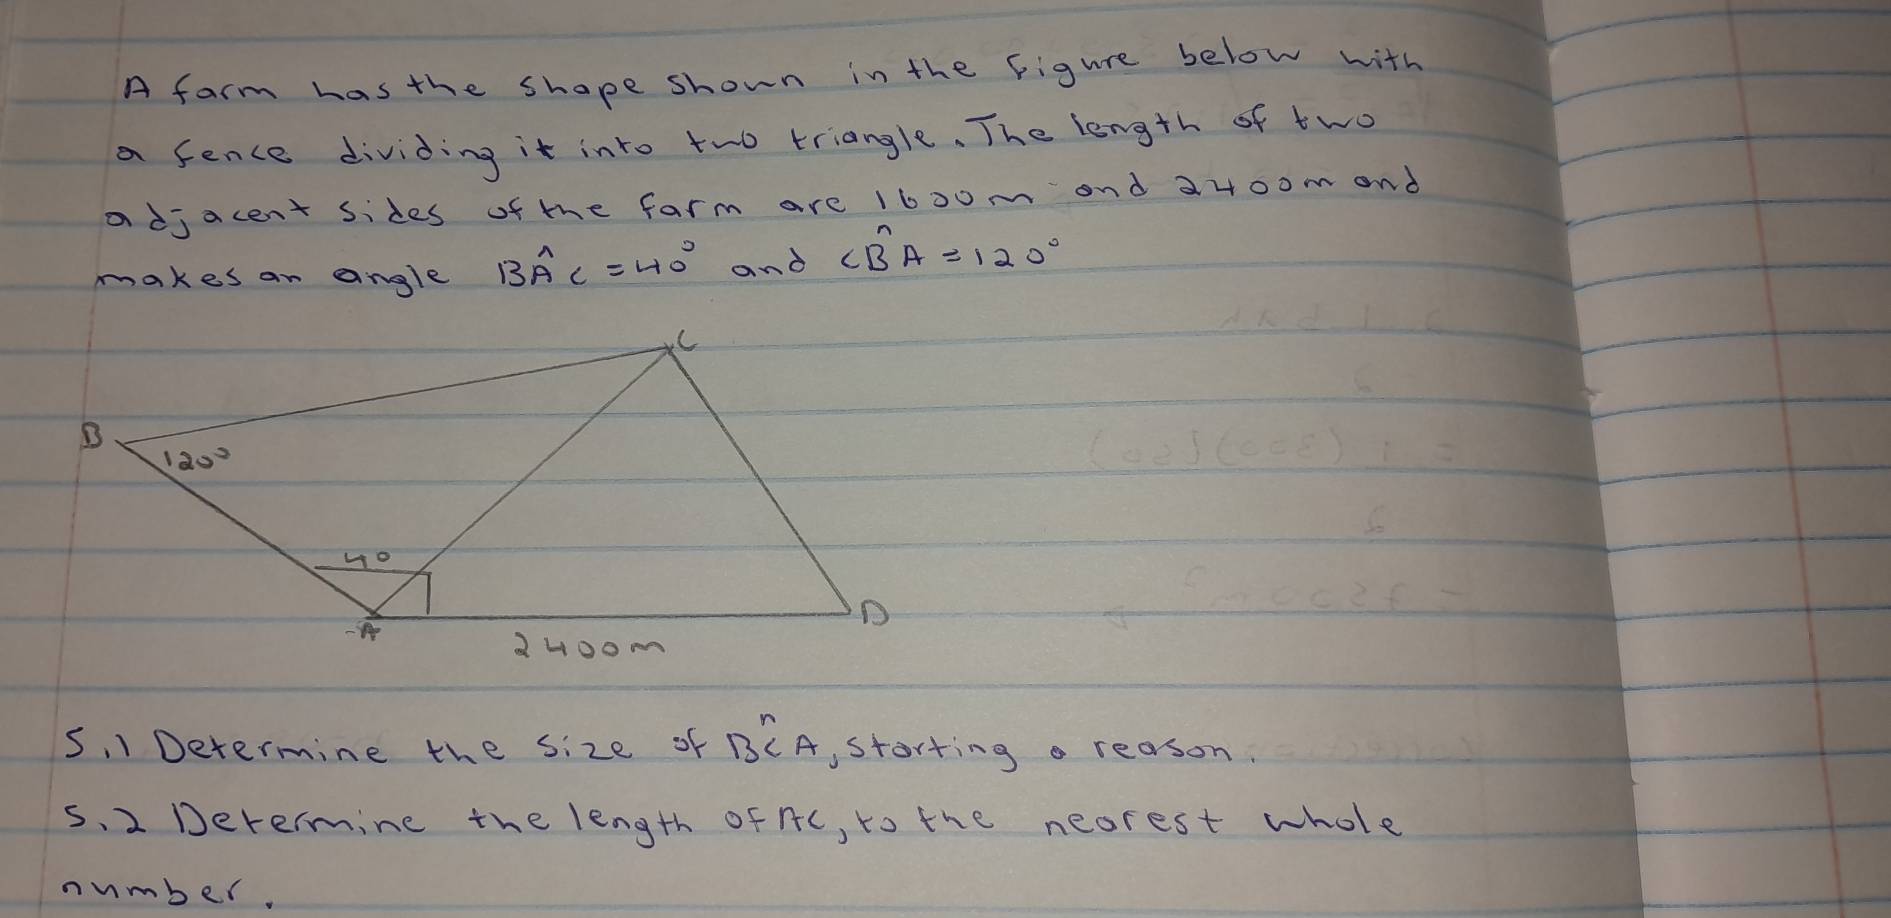 A farm has the shape shown in the figure below with
a fence dividing it into two triangle. The length of two
adjacent sides of the farm are 1600m and 2400m and
makes an angle BÂC = 40° and CB̂A = 120°
C
B
120°
40
A
D
2400m
5.1 Determine the size of BĈA, starting a reason.
5.2 Determine the length of AC, to the nearest whole
number.